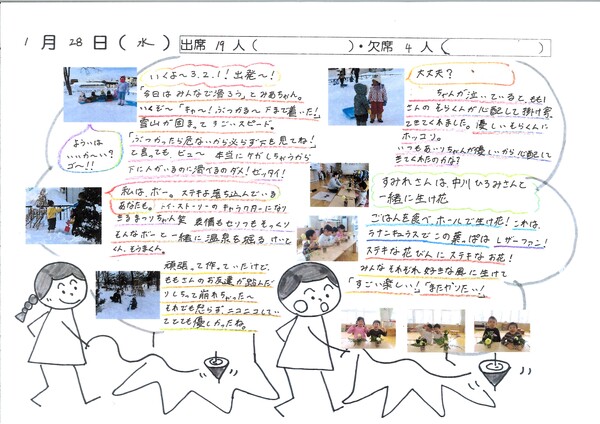 1月28日(水) 出席19人( )・欠席4人( )
いくよ〜3.2.1!出発〜!
「今日はみんなで滑ろう。」とみあちゃん。
いくぞ〜「キャ〜!ぶつかる〜下まで着いた!」
雪山が固まってすごいスピード。
よういは
いいか〜い?
ゴ〜!!
「ぶつかったら危ないから必らず下も見てね!」
て言っても、ビュ〜 本当にケガしちゃうから
下に人がいるのに滑べるのダメ!ゼッタイ!
私は、ボー。ステキな落ち込んでいる
あなたも。トイ・ストーリーのキャラクターになり
きるまつりちゃん笑 表情もセリフもそっくり
そんなボーと一緒に温泉を掘るけいと
くん、もうまくん。
頑張って作っていたけど、
ももさんのお友達が踏んだ
りしちゃって崩れちゃった〜
それでも怒らず、ニコニコしてい
てとても優しかったね。
大丈夫?
ちゃんが泣いていると、もも
さんのもうくんが心配して掛け寄っ
てきてくれました。優しいもうくんに
ホッコリ。
いつもあいりちゃんが優しいから心配して
きてくれたのかな?
すみれさんは、中川ひろみさんと
一緒に生け花
ごはんを食べ、ホールで生け花!これは、
ラナンキュラスでこの葉っぱはレザーファン!
ステキな花びんにステキなお花!
みんなそれぞれ好きな風に生けて
「すごい楽しい!」「またやりたい!」